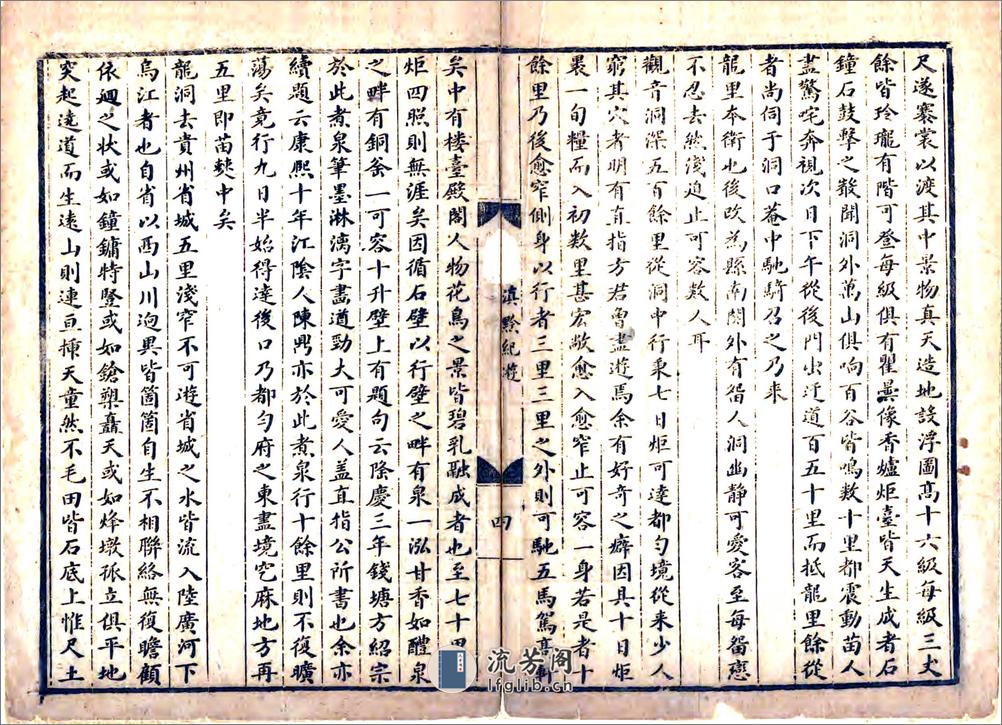 尺遂褰裳以渡其中景物真天造地設浮圖髙十六級每級三丈
餘皆玲瓏有階可登每級俱有瞿曇像香爐炬臺皆天生成者石
鐘石鼓擊之聲聞洞外萬山俱响百谷皆鳴数十里都震動苗人
盡驚咤奔視次日下午從後門出迂道百五十里而抵龍里餘從
者尚伺于洞口菴中馳騎召之乃来
龍里本衛也後改為縣南関外有㽞人洞幽静可愛客至每㽞戀
不忍去然淺迫止可容数人耳
觀音洞深五百餘里從洞中行秉七日炬可達都匀境從来少人
窮其穴者明有直指方君曾盡遊焉余有好奇之癖因具十日炬
褁一旬糧而入初数里甚宏敞愈入愈窄止可容一身若是者十
餘里乃後愈窄側身以行者三里三里之外則可馳五馬駕髙軒
滇黔紀遊
四
矣中有楼臺殿閣人物花鳥之景皆碧乳融成者也至七十里
炬四照則無涯矣因循石壁以行壁之畔有泉一泓甘香如醴泉
之畔有銅釜一可容十升壁上有題句云隆慶三年錢塘方紹宗
於此煮泉筆墨淋漓字畫遒勁大可愛人盖直指公所書也余亦
續題云康熙十年江陰人陳鼎亦於此煮泉行十餘里則不復曠
蕩矣竟行九日半始得達後口乃都匀府之東盡境窄麻地方再
五里即苗藪中矣
龍洞去貴州省城五里淺窄不可遊省城之水皆流入陸廣河下
烏江者也自省以西山川迥異皆箇箇自生不相聯絡無復瞻顧
依廻之状或如鐘鏞特豎或如鎗槊矗天或如烽墩孤立俱平地
突起遶道而生遠山則連亘揷天童然不毛田皆石底上惟尺土
流芳阁
lfglib.cn